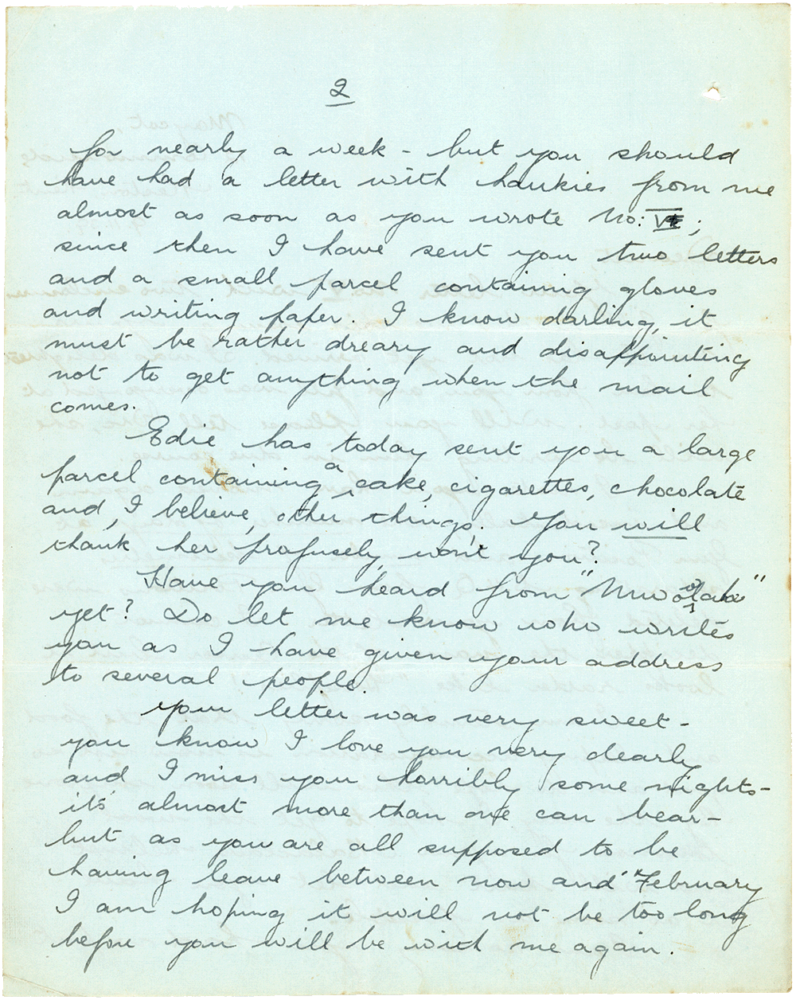 2
for nearly a week - but you should
have had a letter with hankies from me
almost as soon as you wrote No: VI;
since then I have sent you two letters
and a small parcel containing gloves
and writing paper. I know darling, it
must be rather dreary and disappointing
not to get anything when the mail
comes.
Edie has today sent you a large
parcel containing a cake, cigarettes, chocolate
and, I believe, other things. You will
thank her profusely, won't you?
Have you heard from
yet? Do let me know who writes
you as I have given your address
to several people.
Your letter was very sweet -
you know I love you very dearly
and I miss you horribly some nights -
it's almost more than one can bear -
but as you are all supposed to be
having leave between now and February
I am hoping it will not be too long
before you will be with me again.